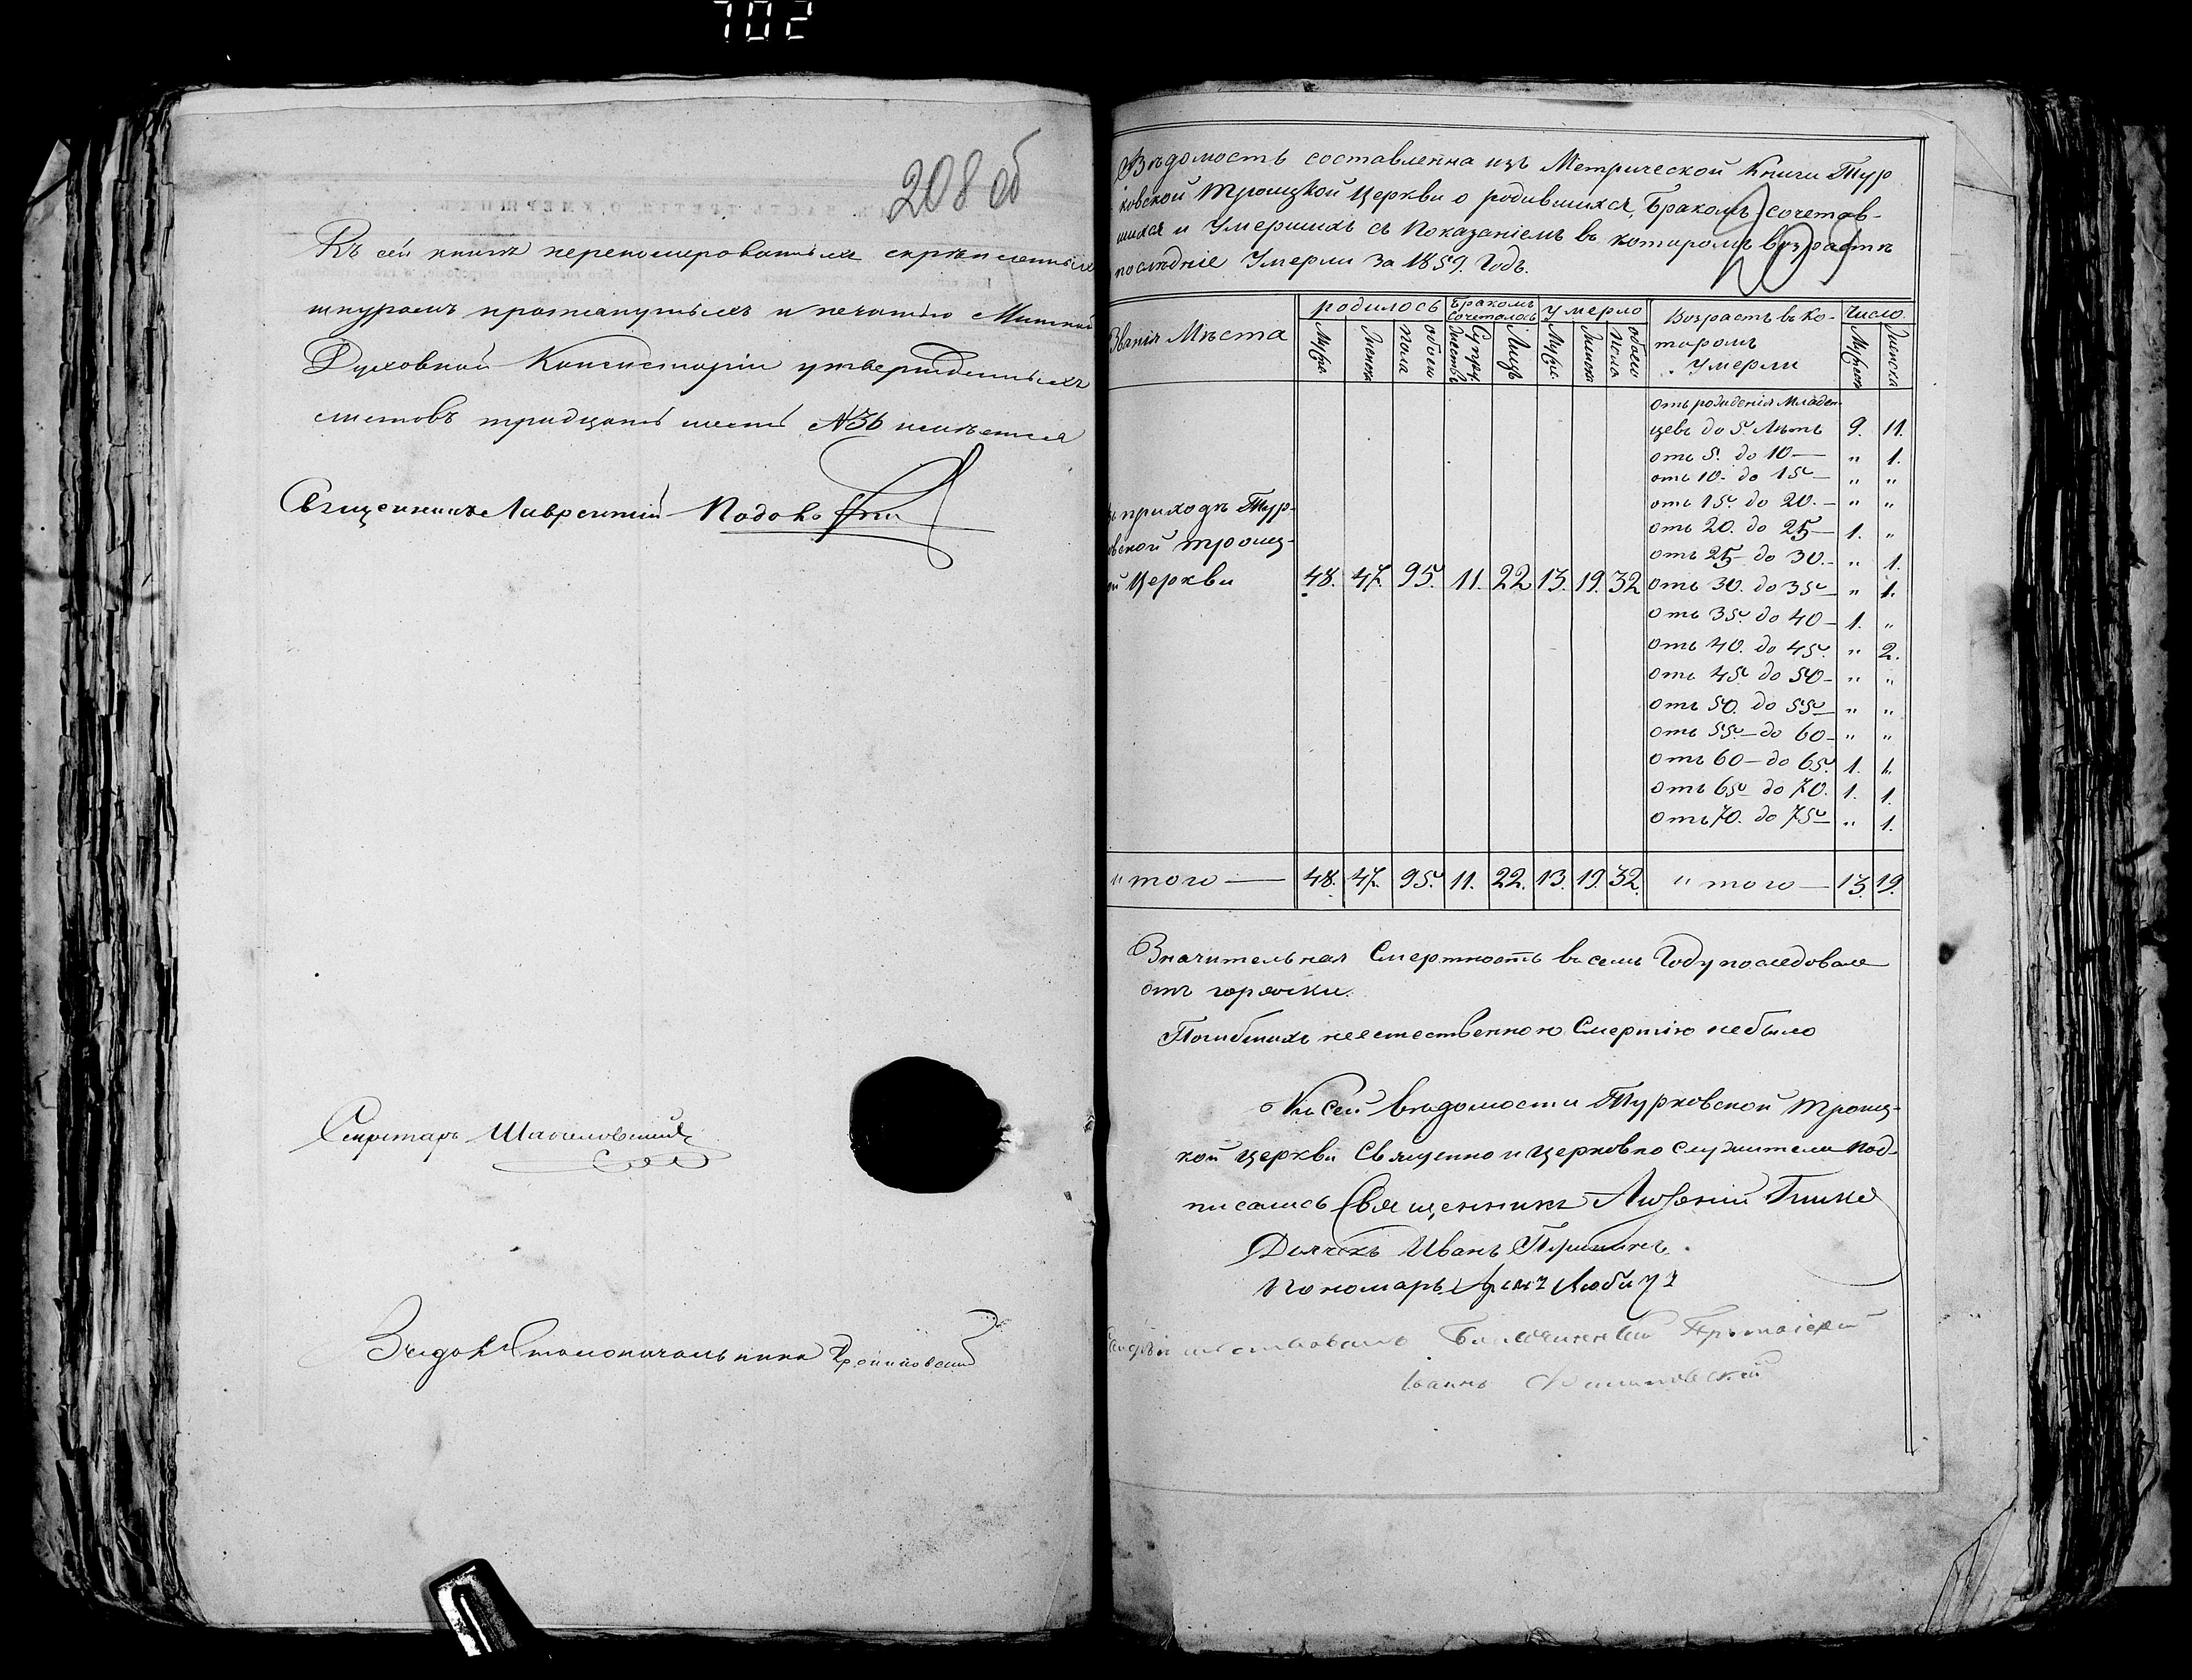 702
208 об
Въ сей книгѣ перенумерованныхъ скрѣпленныхъ
шнуромъ протянутыхъ и печатью Минской
Духовной Консисторіи утвержденныхъ
листовъ тридцать шесть №36 имѣется
Священникъ Лаврентій
Секретарь
Столоначальника
209
Вѣдомость составленна изъ Метрической Книги Тур
ковской Троицкой Церкви о родившихся, Бракомъ сочетав-
шихся и Умершихъ съ Показаніемъ въ которомъ возрастѣ
послѣдніе Умерли за 1859. Годъ.
Званія Мѣста родилось Бракомъ Сочеталось умерло Возрастъ въ ко- Число.
Муж. Женска Обоего Пола Супружествъ Лицъ Муж. Женска Обоего Пола торомъ Мужеск Женска
Умерли
отъ рожденія Младен-
цевъ до 5. Лѣтъ 9. 11.
отъ 5. до 10 — " 1.
отъ 10. до 15 — " "
отъ 15. до 20. — " "
отъ 20. до 25 — 1. "
отъ 25 до 30. — " 1.
въ приходѣ Тур-
ковской Троиц-
кой Церкви 48. 47. 95. 11. 22 13. 19. 32 отъ 30. до 35 — " 1.
отъ 35. до 40 — 1. "
отъ 40. до 45. " 2.
отъ 45 до 50 — " "
отъ 50. до 55 — " "
отъ 55. — до 60 — " "
отъ 60 — до 65. 1. 1.
отъ 65 до 70. 1. 1.
отъ 70. до 75 — " 1.
"того — 48. 47. 95. 11. 22. 13. 19. 32. "того — 13. 19.
Значительная Смертность въ семъ Году последовала
отъ горячки.
Погибшихъ неестественною Смертію небыло
Къ Сей вѣдомости Турковской Троиц-
кой церкви Священно и церковно служители Под-
писались Священникъ
Дьячекъ Иванъ
Пономарь
Благочинный
Іоаннъ